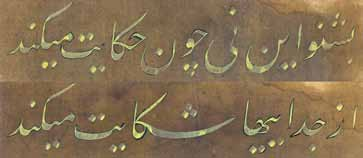 بشنو این نی چون حکایت میکند
از جداییها شکایت میکند